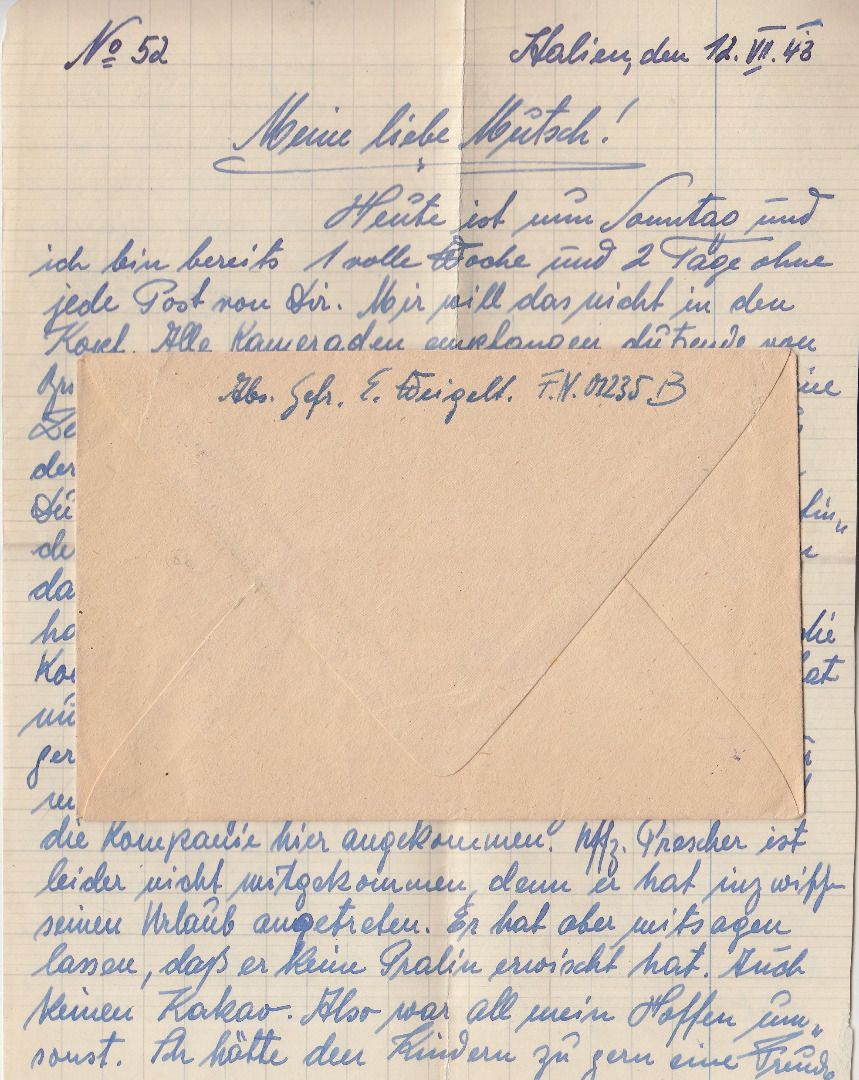 No 52
Italien, den 12. VII. 43
Meine liebe Mutsch!
Heute ist nun Sonntag und
ich bin bereits 1 volle Woche und 2 Tage ohne
jede Post von Dir. Mir will das nicht in den
Kopf. Alle Kameraden empfangen dutzende von
Abs. Gefr. E. Weigelt. F.N. 01235 B
der
Du
de
da
ha
die
Ko
hat
ger
die Kompanie hier angekommen. Uffz. Prescher ist
leider nicht mitgekommen, denn er hat inzwisch-
seinen Urlaub angetreten. Er hat aber mitsagen
lassen, daß er keine Pralin erwischt hat. Auch
keinen Kakao. Also war all mein Hoffen um„
sonst. Ich hätte den Kindern zu gern eine Freude